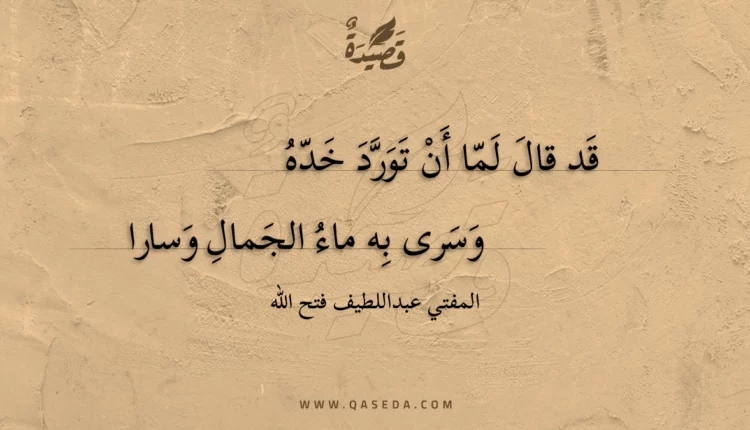 قَصِيْدَةٌ
قَد قالَ لَمّا أَنْ تَوَرَّدَ خَدّهُ
وَسَرى بِه ماءُ الجَمالِ وَسارا
المفتي عبداللطيف فتح الله
WWW.QASEDA.COM